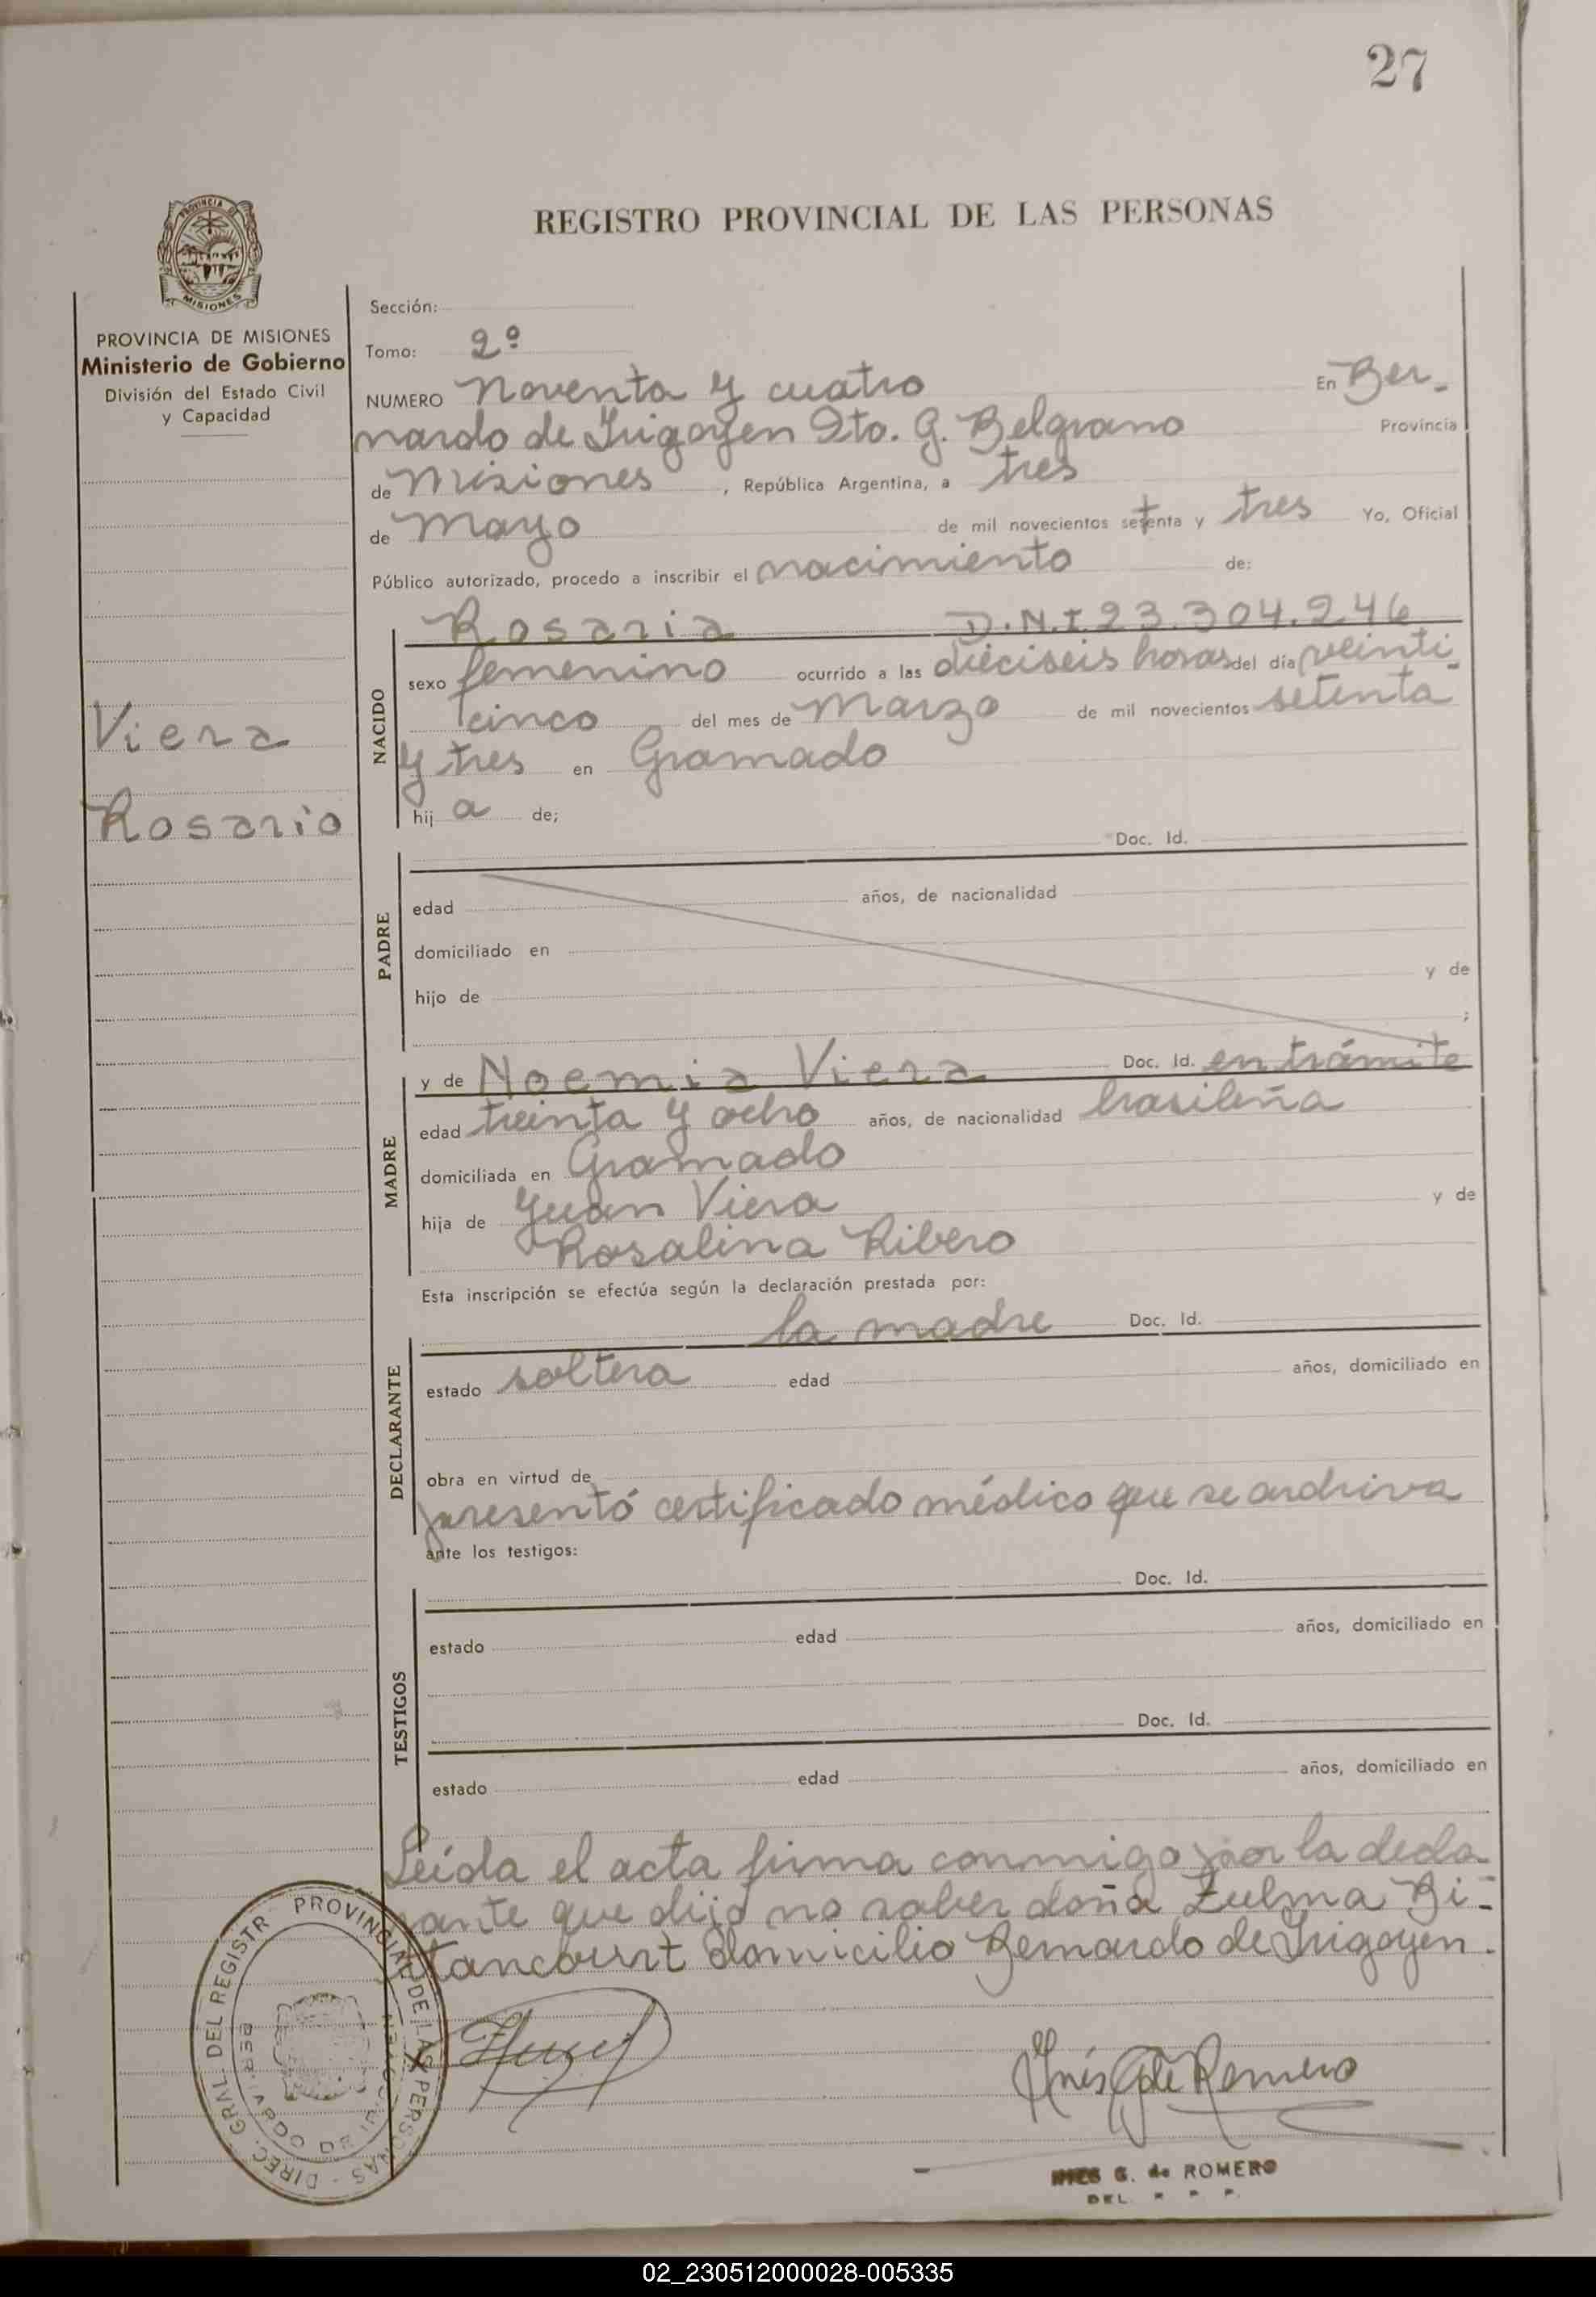 27
REGISTRO PROVINCIAL DE LAS PERSONAS
PROVINCIA DE MISIONES
Ministerio de Gobierno
División del Estado Civil
y Capacidad
Viera
Rosario
Sección:
Tomo: 2º
NUMERO Noventa y cuatro En Ber-
nardo de Irigoyen Dto. G. Belgrano Provincia
de Misiones, República Argentina, a tres
de Mayo de mil novecientos setenta y tres Yo, Oficial
Público autorizado, procedo a inscribir el nacimiento de:
Rosaria D.N.I 23.304.246
NACIDO
sexo femenino ocurrido a las dieciseis horas del día veinti-
cinco del mes de Marzo de mil novecientos setenta
y tres en Gramado
hij a de;
Doc. Id.
PADRE
edad años, de nacionalidad
domiciliado en
hijo de y de
;
MADRE
y de Noemia Viera Doc. Id. en trámite
edad treinta y ocho años, de nacionalidad brasileña
domiciliada en Gramado
hija de Juan Viera y de
Rosalina Ribero
Esta inscripción se efectúa según la declaración prestada por:
DECLARANTE
la madre Doc. Id.
estado soltera edad años, domiciliado en
obra en virtud de
presentó certificado médico que se archiva
ante los testigos:
TESTIGOS
Doc. Id.
estado edad años, domiciliado en
Doc. Id.
estado edad años, domiciliado en
Leída el acta firma conmigo por la decla
rante que dijo no saber doña Zulma Bi-
tancourt domicilio Bernardo de Irigoyen.
DIREC. GRAL. DEL REGISTR PROVINCIAL DE LAS PERSONAS
Inés G de Romero
INES G. de ROMERO
DEL. R P P.
02_230512000028-005335